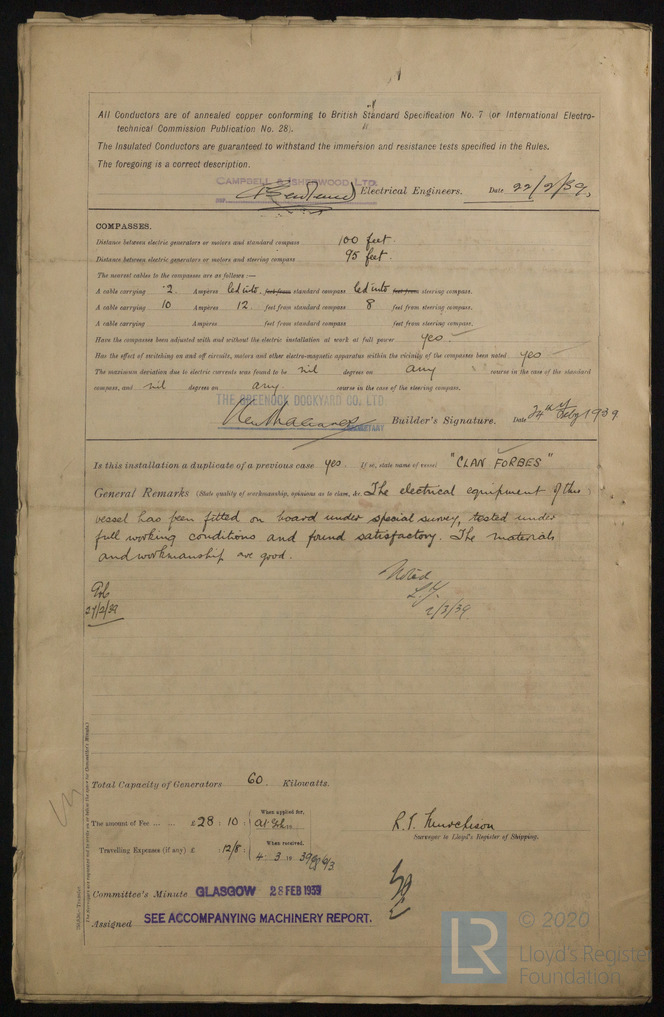 All Conductors are of annealed copper conforming to British Standard Specification No. 7 (or International Electro-
technical Commission Publication No. 28).
The Insulated Conductors are guaranteed to withstand the immersion and resistance tests specified in the Rules.
The foregoing is a correct description.
CAMPBELL & ISHERWOOD LTD.
Electrical Engineers. Date 22/2/39,
COMPASSES.
Distance between electric generators or motors and standard compass 100 feet.
Distance between electric generators or motors and steering compass 95 feet.
The nearest cables to the compasses are as follows :—
A cable carrying .2. Ampères led into feet from standard compass led into feet from steering compass.
A cable carrying 10 Ampères 12. feet from standard compass 8 feet from steering compass.
A cable carrying Ampères feet from standard compass feet from steering compass.
Have the compasses been adjusted with and without the electric installation at work at full power yes.
Has the effect of switching on and off circuits, motors and other electro-magnetic apparatus within the vicinity of the compasses been noted yes
The maximum deviation due to electric currents was found to be nil degrees on any course in the case of the standard
compass, and nil degrees on any course in the case of the steering compass.
THE GREENOCK DOCKYARD CO. LTD.
SECRETARY Builder's Signature. Date 24th Feby 1939
Is this installation a duplicate of a previous case yes If so, state name of vessel "CLAN FORBES"
General Remarks (State quality of workmanship, opinions as to class, &c. The electrical equipment of this
vessel has been fitted on board under special survey, tested under
full working conditions and found satisfactory. The materials
and workmanship are good.
Noted
27/2/39
2/3/39
Total Capacity of Generators 60. Kilowatts.
When applied for,
The amount of Fee ... ... £28 : 10 :
R. J. Murchison
Surveyor to Lloyd's Register of Shipping.
When received,
Travelling Expenses (if any) £ : 12/8 : 4.3.19 39
Committee's Minute GLASGOW 28 FEB 1939
Assigned SEE ACCOMPANYING MACHINERY REPORT.
LR
© 2020
Lloyd's Register
Foundation